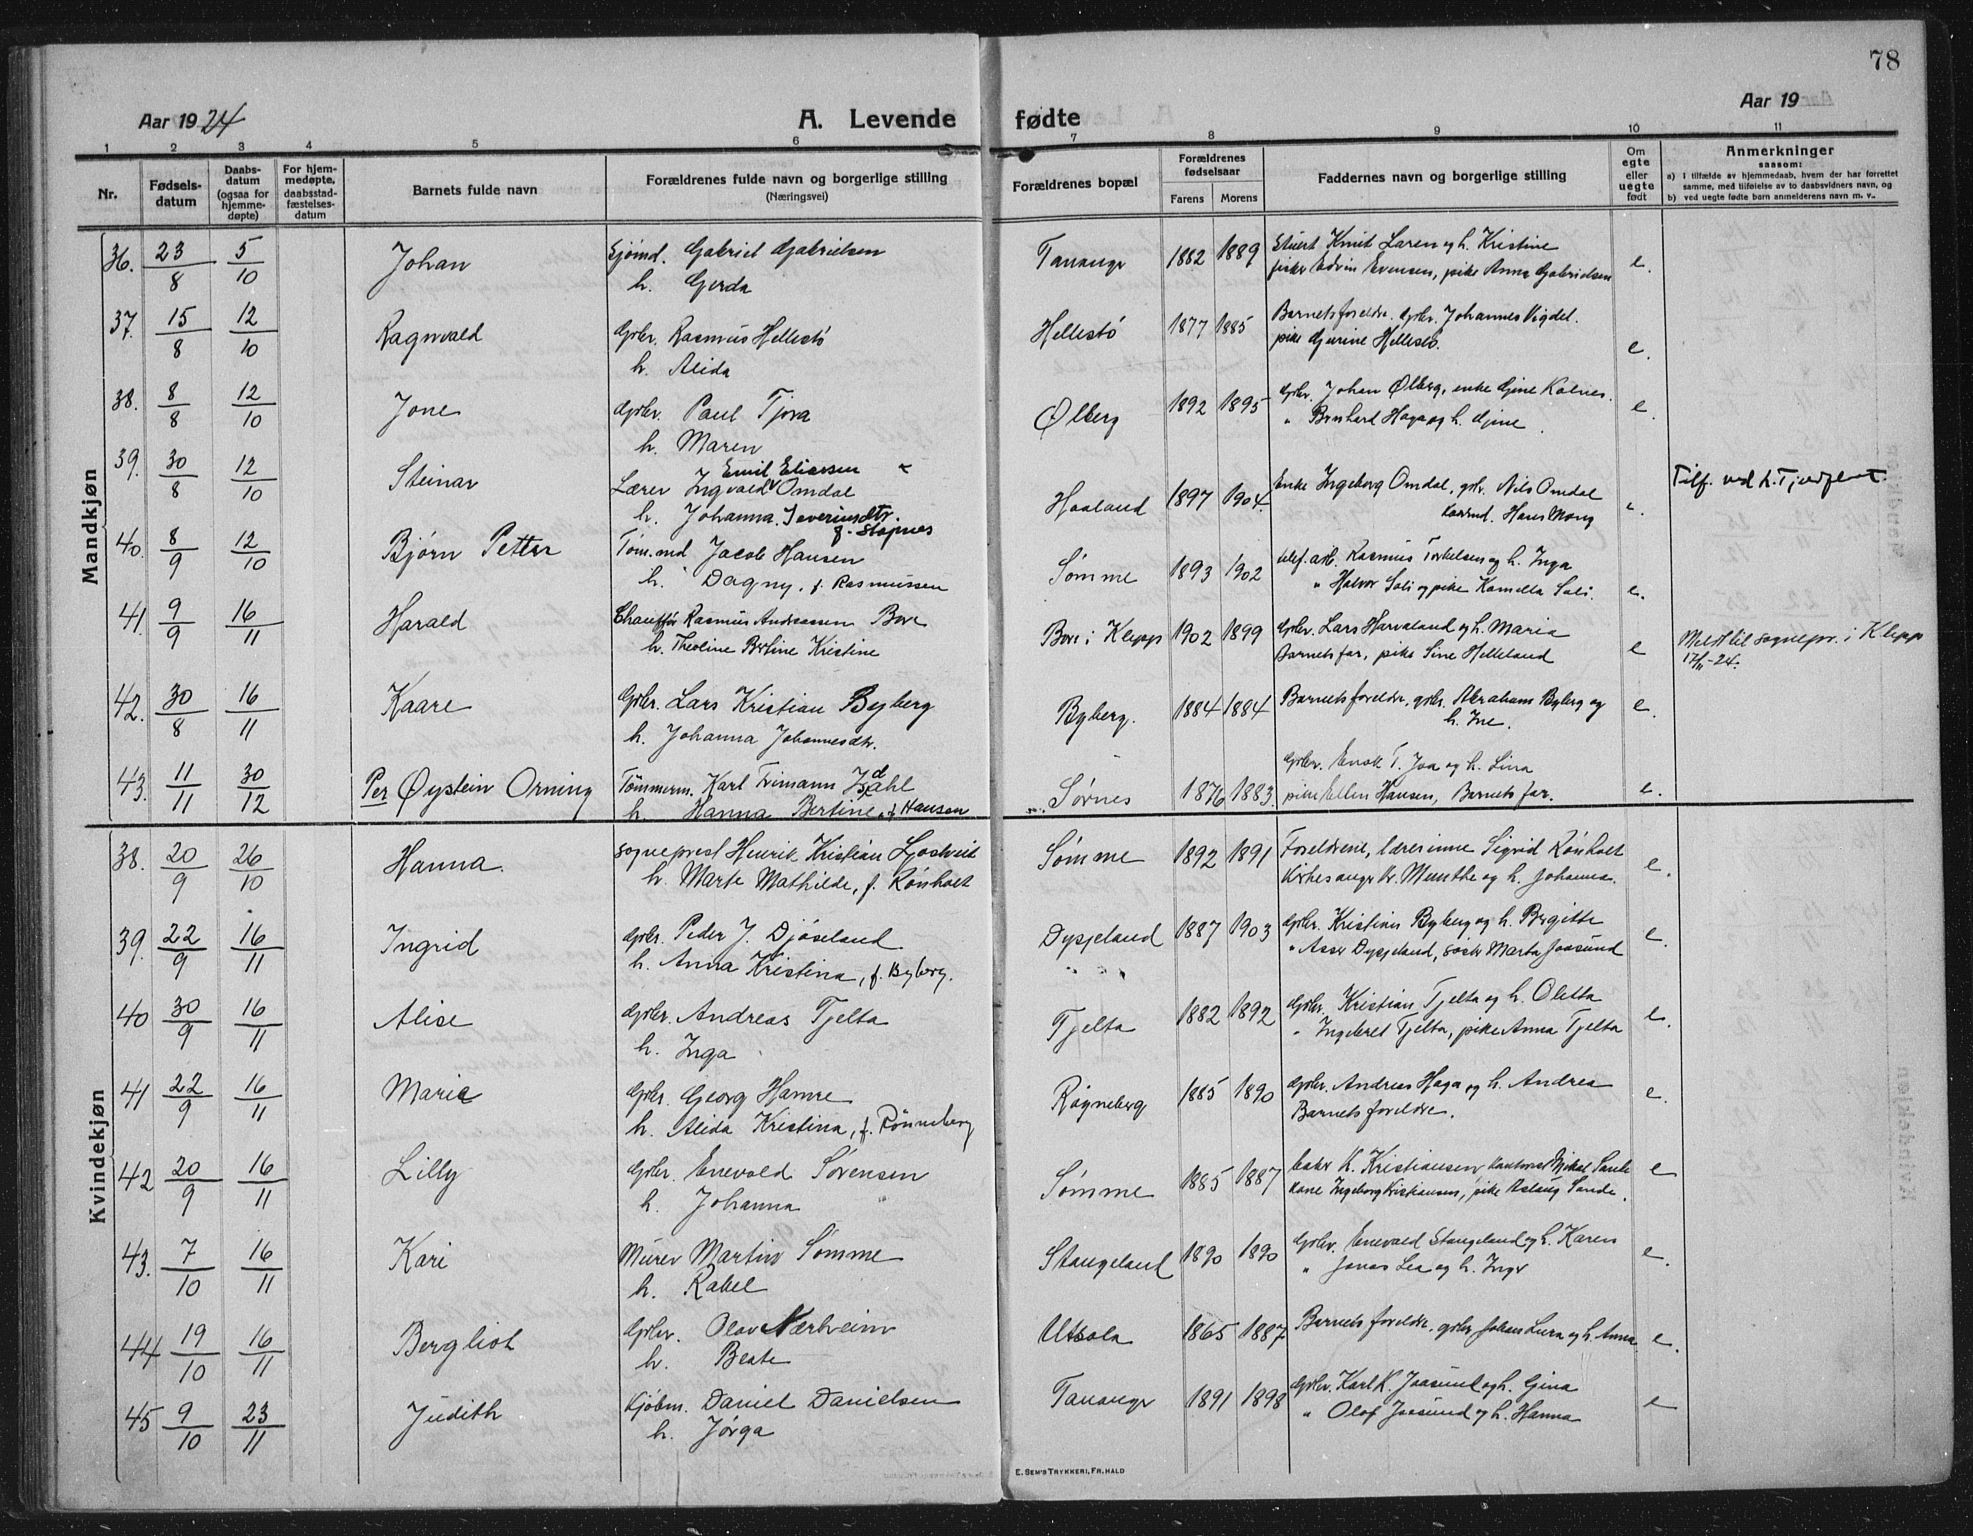 78
Aar 1924
A. Levende fødte
Aar 19
1 2 3 4 5 6 7 8 9 10 11
Nr.
Fødsels-
datum
Daabs-
datum
(ogsaa for
hjemme-
døpte)
For hjem-
medøpte,
daabsstad-
fæstelses-
datum
Barnets fulde navn
Forældrenes fulde navn og borgerlige stilling
(Næringsvei)
Forældrenes bopæl
Forældrenes
fødselsaar
Farens Morens
Faddernes navn og borgerlige stilling
Om
egte
eller
uegte
født
Anmerkninger
saasom:
a) I tilfælde av hjemmedaab, hvem der har forrettet
samme, med tilføielse av to daabsvidners navn, og
b) ved uegte fødte barn anmelderens navn m. v..
Mandkjøn
36. 23/8 5/10 Johan Sjømd. Gabriel Gabrielsen Tananger 1882 1889 Stuert Knut Larsen og h. Kristine e.
h. Gerda fisker Edvin Evensen, pike Anna Gabrielsen
37. 15/8 12/10 Ragnvald Gbr. Rasmus Hellestö Hellestö 1877 1885 Barnets foreldre. Gbr. Johannes Vigdel. e.
h. Alida pike Gurine Hellestö.
38. 8/8 12/10 Jone Gbr. Paul Tjora Ølberg 1892 1895 Gbr. Johan Ølberg, enke Gine Kolnes. e.
h. Maren " Bernhard Haga og h. Gine
39. 30/8 12/10 Steinar Lærer Ingvald Emil Eliassen Omdal Haaland 1897 1904 Enke Ingeborg Omdal, gbr. Nils Omdal e.
h. Johanna Severinsdtr. f. Stapnes Hans Mong
40. 8/9 12/10 Bjørn Petter Tøm.md Jacob Hansen Sømme 1893 1902 telef. arb. Rasmus Torkelsen og h. Inga e.
h. Dagny, f. Rasmussen " Halvor Soli og pike Kamilla Soli.
41. 9/9 16/11 Harald Chauffør Rasmus Andreassen Bore Bore i Klepp 1902 1899 Gbr. Lars Harvaland og h. Maria e Meldt til sognepr. i Klepp
h. Theoline Bertine Kristine Barnets far, pike Sine Helleland 17/11-24.
42. 30/8 16/11 Kaare Gbr. Lars Kristian Byberg Byberg. 1884 1884 Barnets foreldre, gbr. Abraham Byberg og e.
h. Johanna Johannesdtr. h. Ine.
43. 11/11 30/12 Per Øystein Orning Tömmerm. Karl Frimann Dahl Sørnes 1876 1883. Gbr. Enok T. Joa og h. Lina e.
h. Hanna Bertine, f. Hansen pike Ellen Hansen, Barnets far.
Kvindekjøn
38. 20/9 26/10 Hanna. sogneprest Henrik Kristian Ljostveit Sømme 1892 1891 Foreldrene, lærerinne Sigrid Rønholt e.
h. Marte Mathilde, f. Rønholt Kirkesanger Kr. Munthe og h. Johanna.
39. 22/9 16/11 Ingrid Gbr. Peder J. Djøseland Dysjeland 1887 1903 Gbr. Kristian Byberg og h. Birgitte e.
h. Anna Kristina, f. Byberg. " Asser Dysjeland, søster Marta Joasund
40 30/9 16/11 Alise Gbr. Andreas Tjelta Tjelta 1882 1892 Gbr. Kristian Tjelta og h. Oletta e.
h. Inga " Ingebret Tjelta, pike Anna Tjelta
41 22/9 16/11 Marie Gbr. Georg Hamre Røgneberg 1885 1890 Gbr. Andreas Haga og h. Andrea e.
h. Alida Kristina, f. Rønneberg Barnets foreldre.
42 20/9 16/11 Lilly Gbr. Enevald Sørensen Sømme 1885 1887 K. Kristiansen Kantorist Mikal Sande e
h. Johanna Kone Ingeborg Kristiansen, pike Aslaug Sande.
43. 7/10 16/11 Kari Murer Martin Sømme Stangeland 1890 1890 Gbr. Enevald Stangeland og h. Karen e.
h. Rakel " Jonas Lea og h. Inger
44 19/10 16/11 Bergliot Gbr. Olav Nærheim Utsola 1865 1887 Barnets foreldre, gbr Johan Lura og h. Anna e.
h. Beate
45 9/10 23/11 Judith Kjøbm. Daniel Danielsen Tananger 1891 1898 Gbr. Karl K. Joasund og h. Gina e
h. Jørga " Olaf Joasund og h. Hanna
E. SEM'S TRYKKERI, FR.HALD